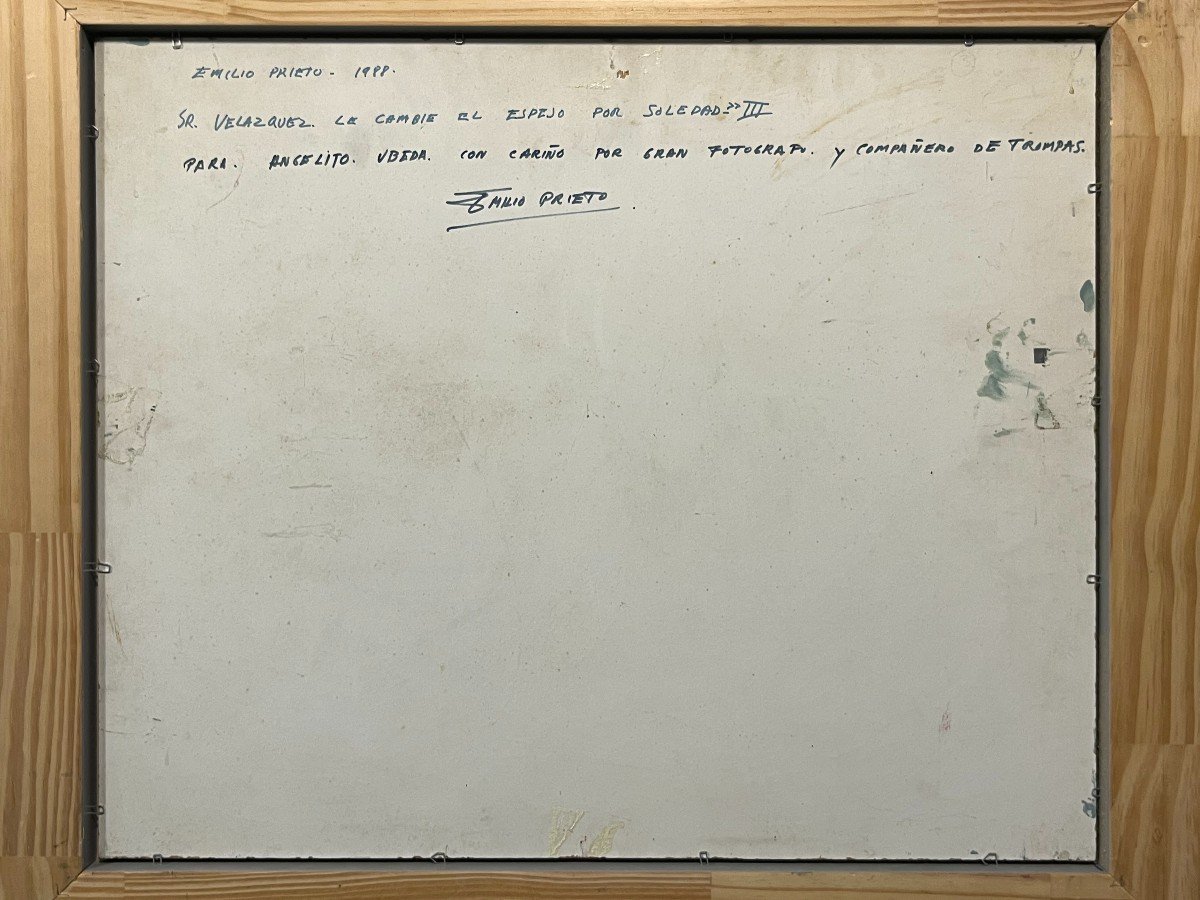 EMILIO PRIETO - 1988.
SR. VELAZQUEZ. LE CAMBIE EL ESPEJO POR SOLEDAD-" III
PARA. ANGELITO. UBEDA. CON CARIÑO POR GRAN FOTOGRAFO. Y COMPAÑERO DE TROMPAS.
EMILIO PRIETO.